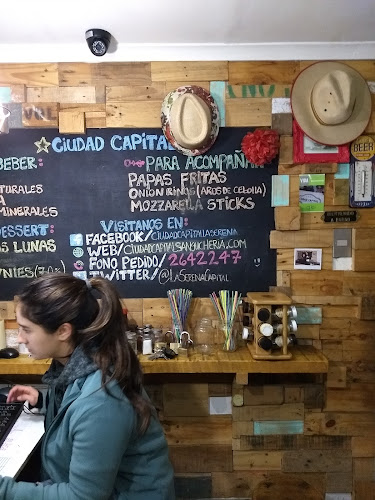 CIUDAD CAPITAL
BEBER:
PARA ACOMPAÑAR
PAPAS FRITAS
ONION RINGS (AROS DE CEBOLLA)
MOZZARELLA STICKS
MINERALES
VISITANOS EN:
FACEBOOK/CIUDADCAPITALLASERENA
WEB/CIUDADCAPITALSANGUCHERIA.COM
FONO PEDIDO/2642247
TWITTER/@LASERENACAPITAL
LUNAS
BEER